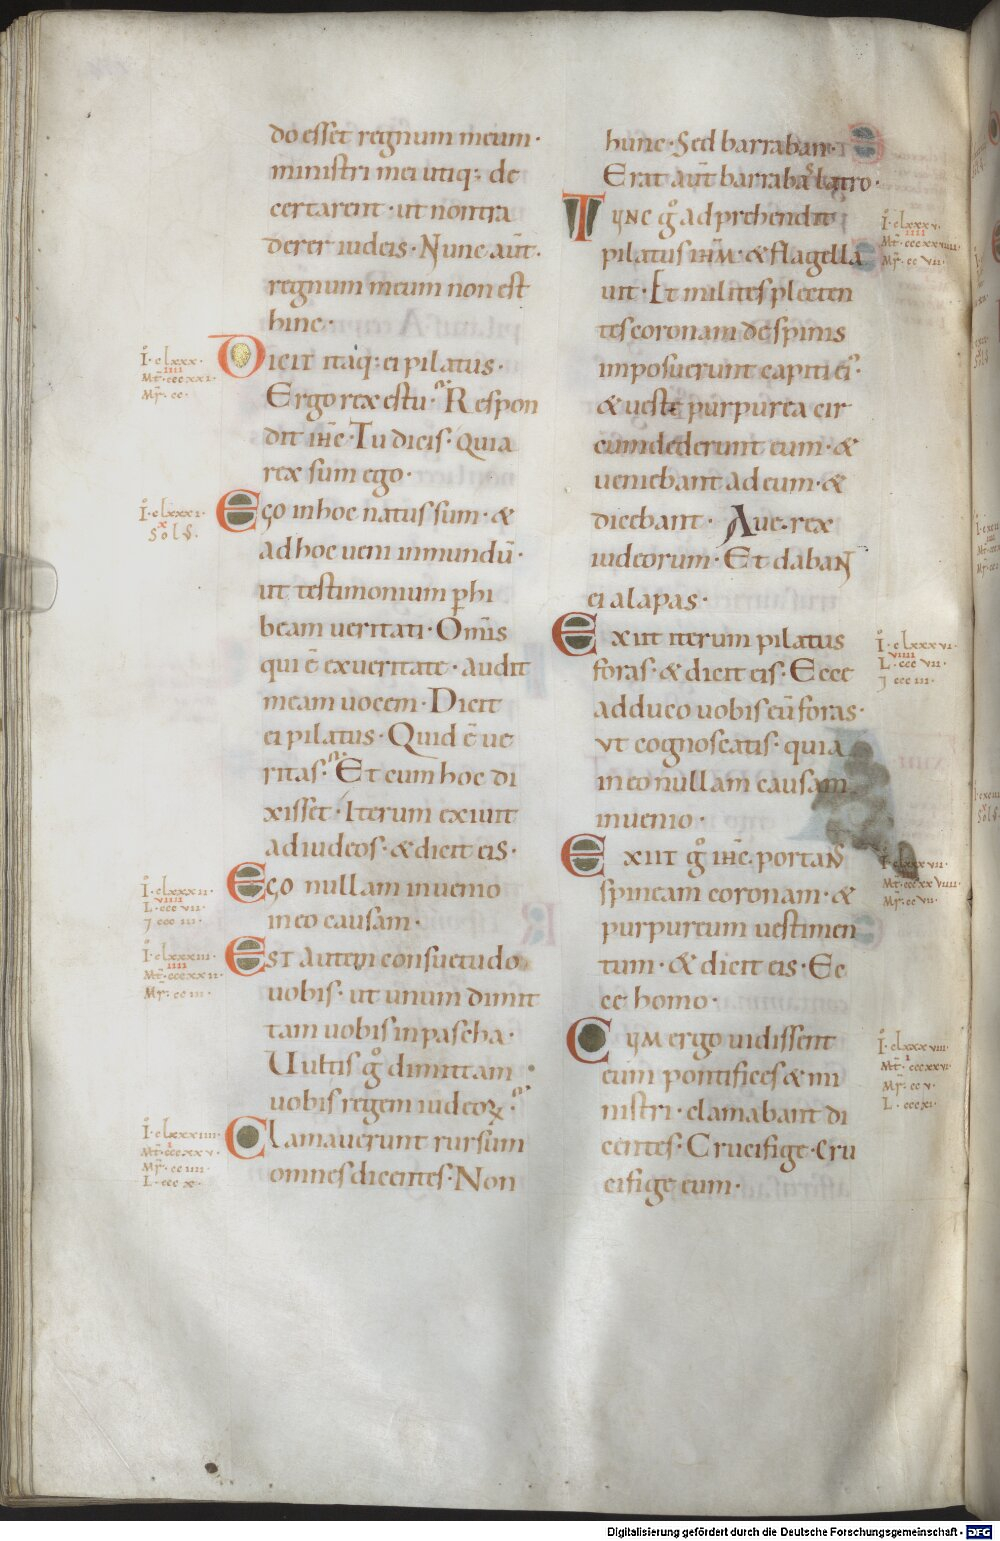 do esset regnum meum·
ministri mei utiq; de
certarent· ut non tra
derer iudeis· Nunc aūt·
regnum meum non est
hinc·
I· clxxx·
IIII
Mt· cccxxi·
Mr· cc·
Dicit itaq; ei pilatus·
Ergo rex es tu· Respon
dit ihc· Tu dicis· quia
rex sum ego·
I· clxxxi·
x
Solś·
Ego in hoc natus sum· &
ad hoc ueni in mundū·
ut testimonium phi
beam ueritati· Omīs
qui ē ex ueritate· audit
meam uocem· Dicit
ei pilatus· Quid ē ue
ritas· Et cum hoc di
xisset· Iterum exiuit
ad iudeos· & dicit eis·
I· clxxxii·
VIIII
L· cccvii·
J ccciii·
Ego nullam inuenio
in eo causam·
I· clxxxiii·
IIII
Mt· cccxxii·
Mr· cciii·
Est autem consuetudo
uobis· ut unum dimit
tam uobis in pascha·
Uultis gͦ dimittam
uobis regem iudeoꝝ·
I· clxxxiiii·
I
Mt· cccxxv·
Mr· cciiii·
L· cccx·
Clamauerunt rursum
omnes dicentes· Non
hunc· Sed barraban·
Erat aūt barrabas latro·
I· clxxxv·
IIII
Mr· ccvii·
Tunc gͦ adprehendit
pilatus ihm· & flagella
uit· Et milites plecten
tes coronam de spinis
imposuerunt capiti ei·
& ueste purpurea cir
cumdederunt eum· &
ueniebant ad eum· &
dicebant· Aue· rex
iudeorum· Et daban
ei alapas·
I· clxxxvi·
VIIII
L· cccvii·
J ccciii·
Exiit iterum pilatus
foras· & dicit eis· Ecce
adduco uobis eū foras·
ut cognoscatis· quia
in eo nullam causam
inuenio·
Mr· ccvii·
Exiit gͦ ihc· portanˢ
spineam coronam· &
purpureum uestimen
tum· & dicit eis· Ec
ce homo·
I· clxxxviii·
I
Mt· cccxxvi·
Mr· ccv·
L· cccxi·
Cum ergo uidissent
eum pontifices & mi
nistri· clamabant di
centes· Crucifige· cru
cifige eum·
Digitalisierung gefördert durch die Deutsche Forschungsgemeinschaft - DFG